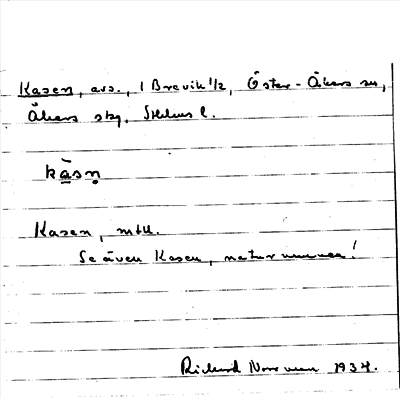 Kasen, avs., 1 Brevik 1/2, Öster-Åkers sn,
Åkers skg, Sthlms l.
kàsn̥
Kasen, mtbl.
Se även Kasen, naturnamnen!
Rickard Norrman 1934.